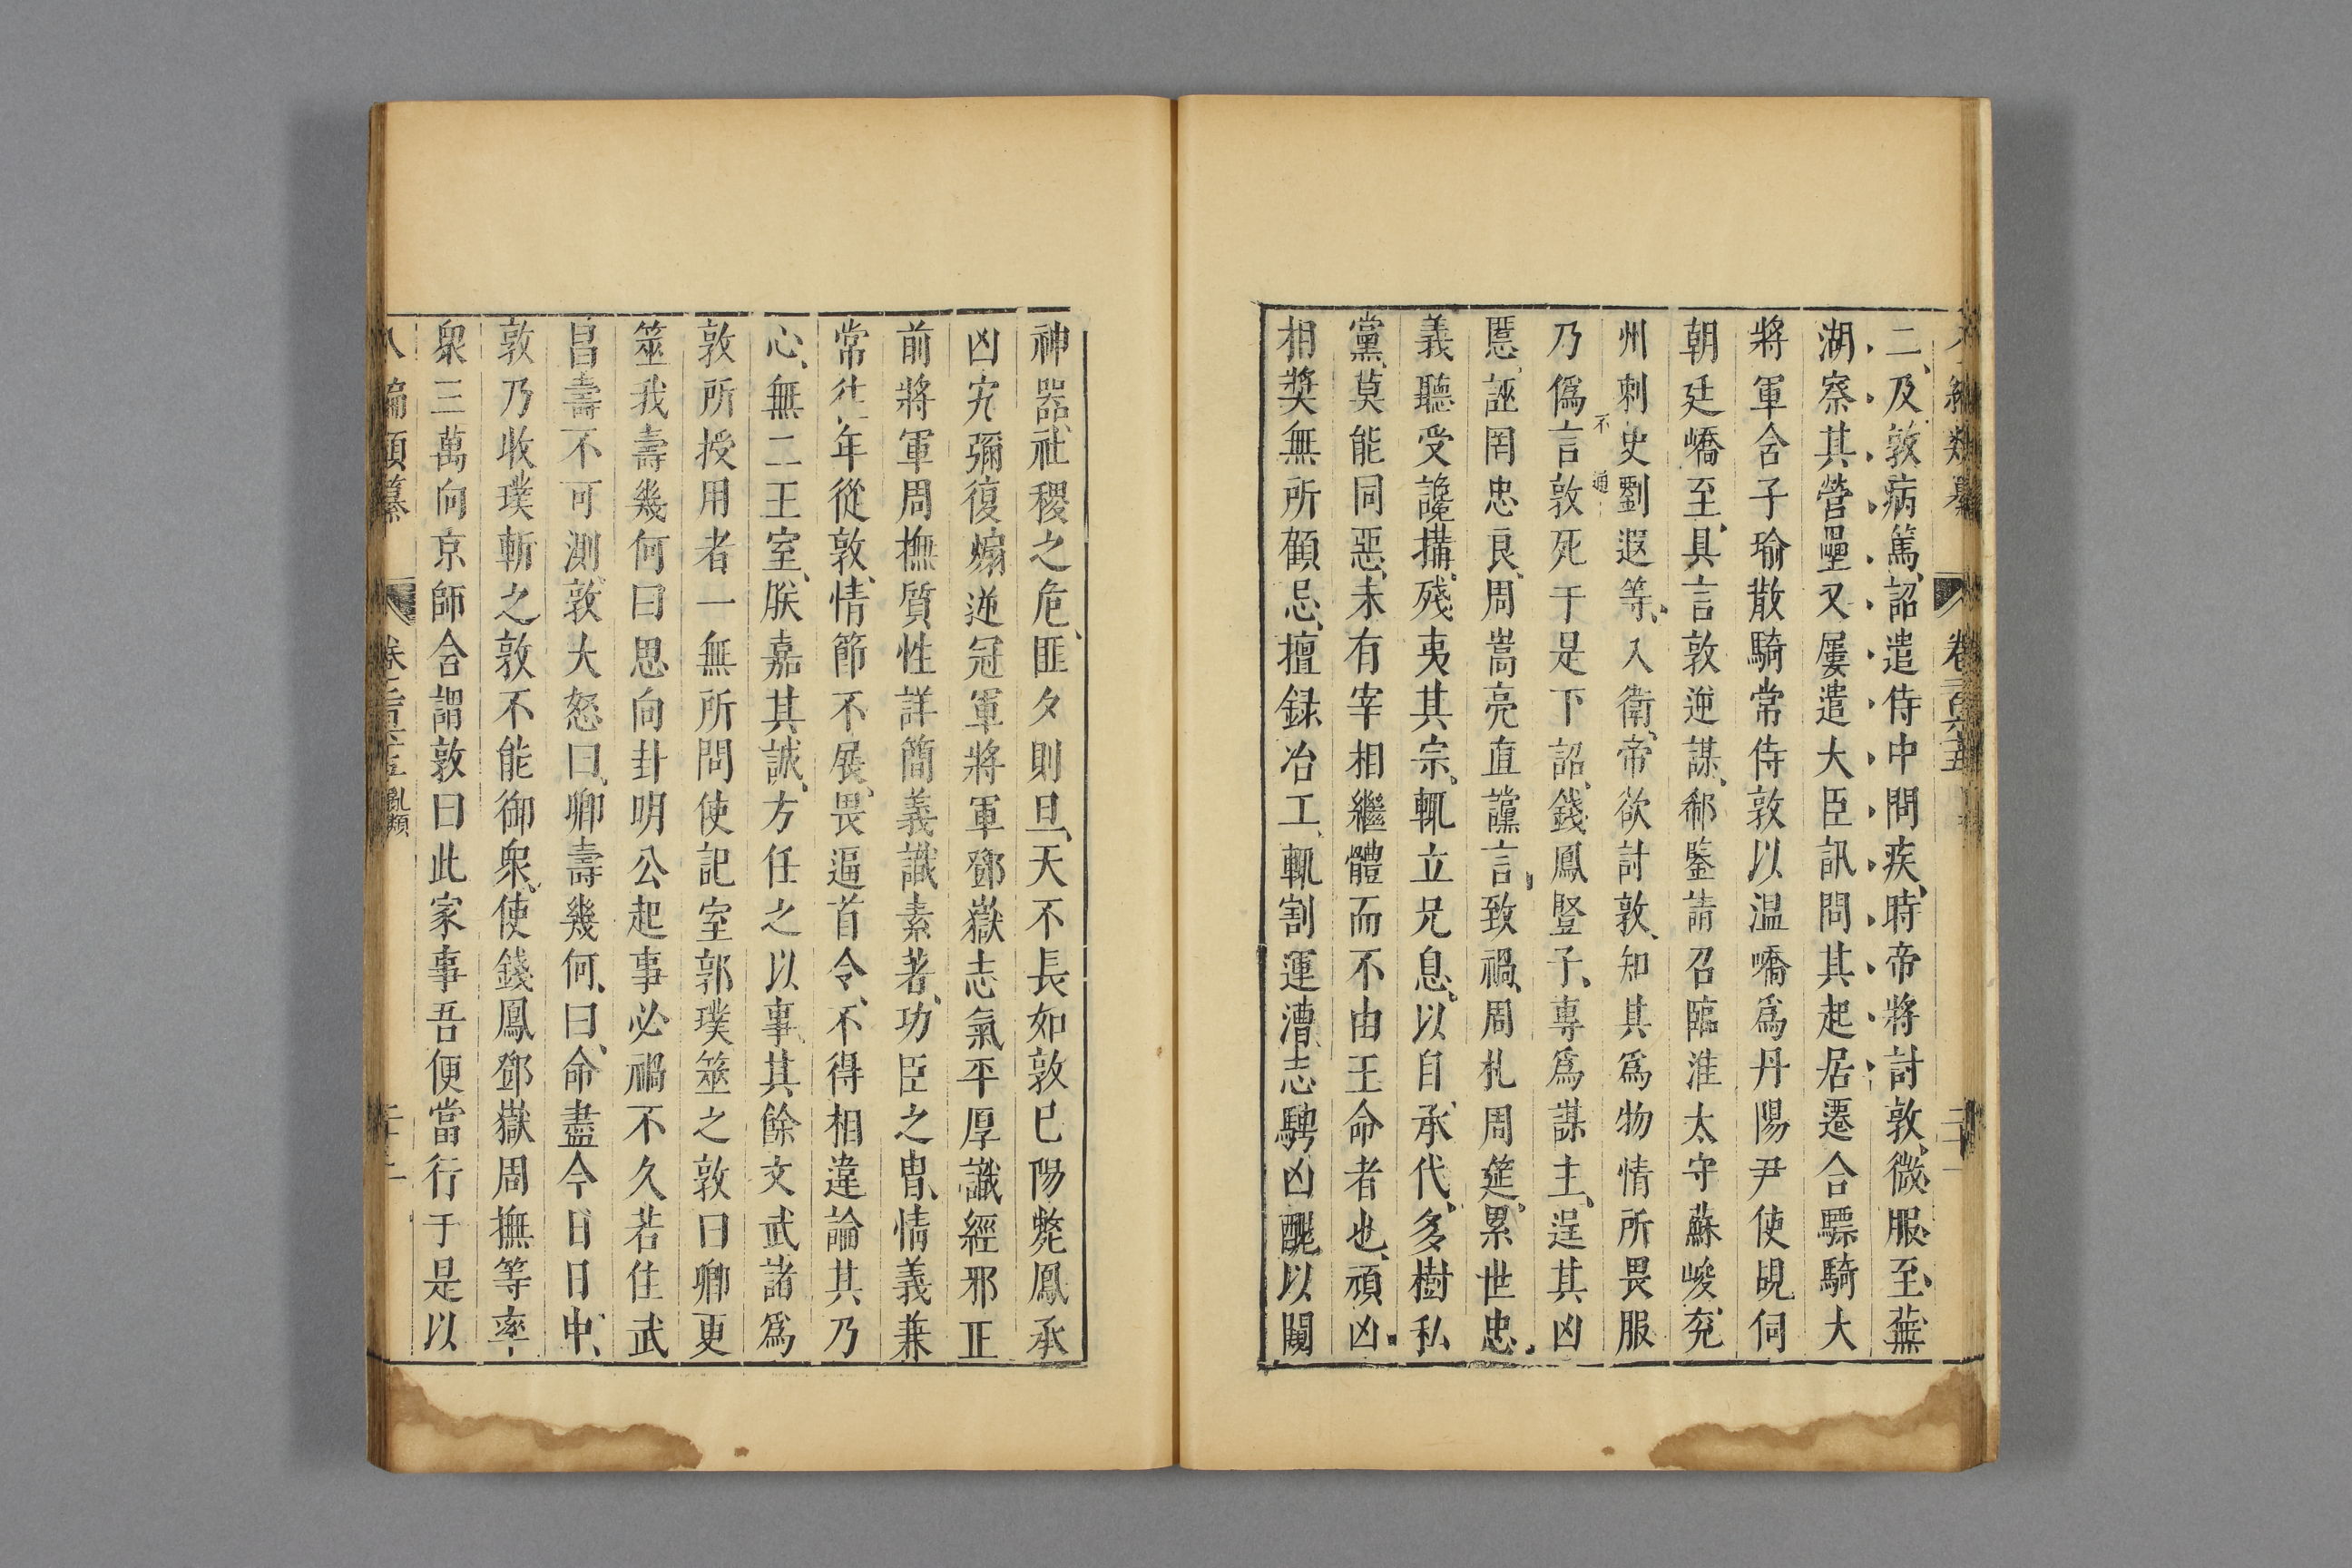 二及敦病篤詔遣侍中問疾時帝將討敦微服至蕪
湖察其營壘又屢遣大臣訊問其起居遷合驃騎大
將軍含子瑜散騎常侍敦以温嶠爲丹陽尹使覘伺
朝廷嶠至具言敦逆謀郗鑒請召臨淮太守蘇峻兖
州刺史劉遐等入衛帝欲討敦知其爲物情所畏服
不通
乃僞言敦死于是下詔錢鳳豎子專爲謀主逞其凶
慝誣罔忠良周嵩亮直讜言致禍周札周筵累世忠
義聽受讒搆殘夷其宗輒立兄息以自承代多樹私
黨莫能同惡未有宰相繼體而不由王命者也頑凶
相奬無所顧忌擅録冶工輒割運漕志騁凶醜以闚
神器社稷之危匪夕則旦天不長奸敦已隕斃鳳承
凶宄彌復煽逆冠軍將軍鄧嶽志氣平厚識經邪正
前將軍周撫質性詳簡義識素著功臣之胄情義兼
常往年從敦情節不展畏逼首令不得相違論其乃
心無二王室朕嘉其誠方任之以事其餘文武諸爲
敦所授用者一無所問使記室郭璞筮之敦曰卿更
筮我壽幾何曰思向卦明公起事必禍不久若住武
昌壽不可測敦大怒曰卿壽幾何曰命盡今日日中
敦乃收璞斬之敦不能御衆使錢鳳鄧嶽周撫等率
衆三萬向京師含謂敦曰此家事吾便當行于是以
八編類纂 卷二百五十五 亂類